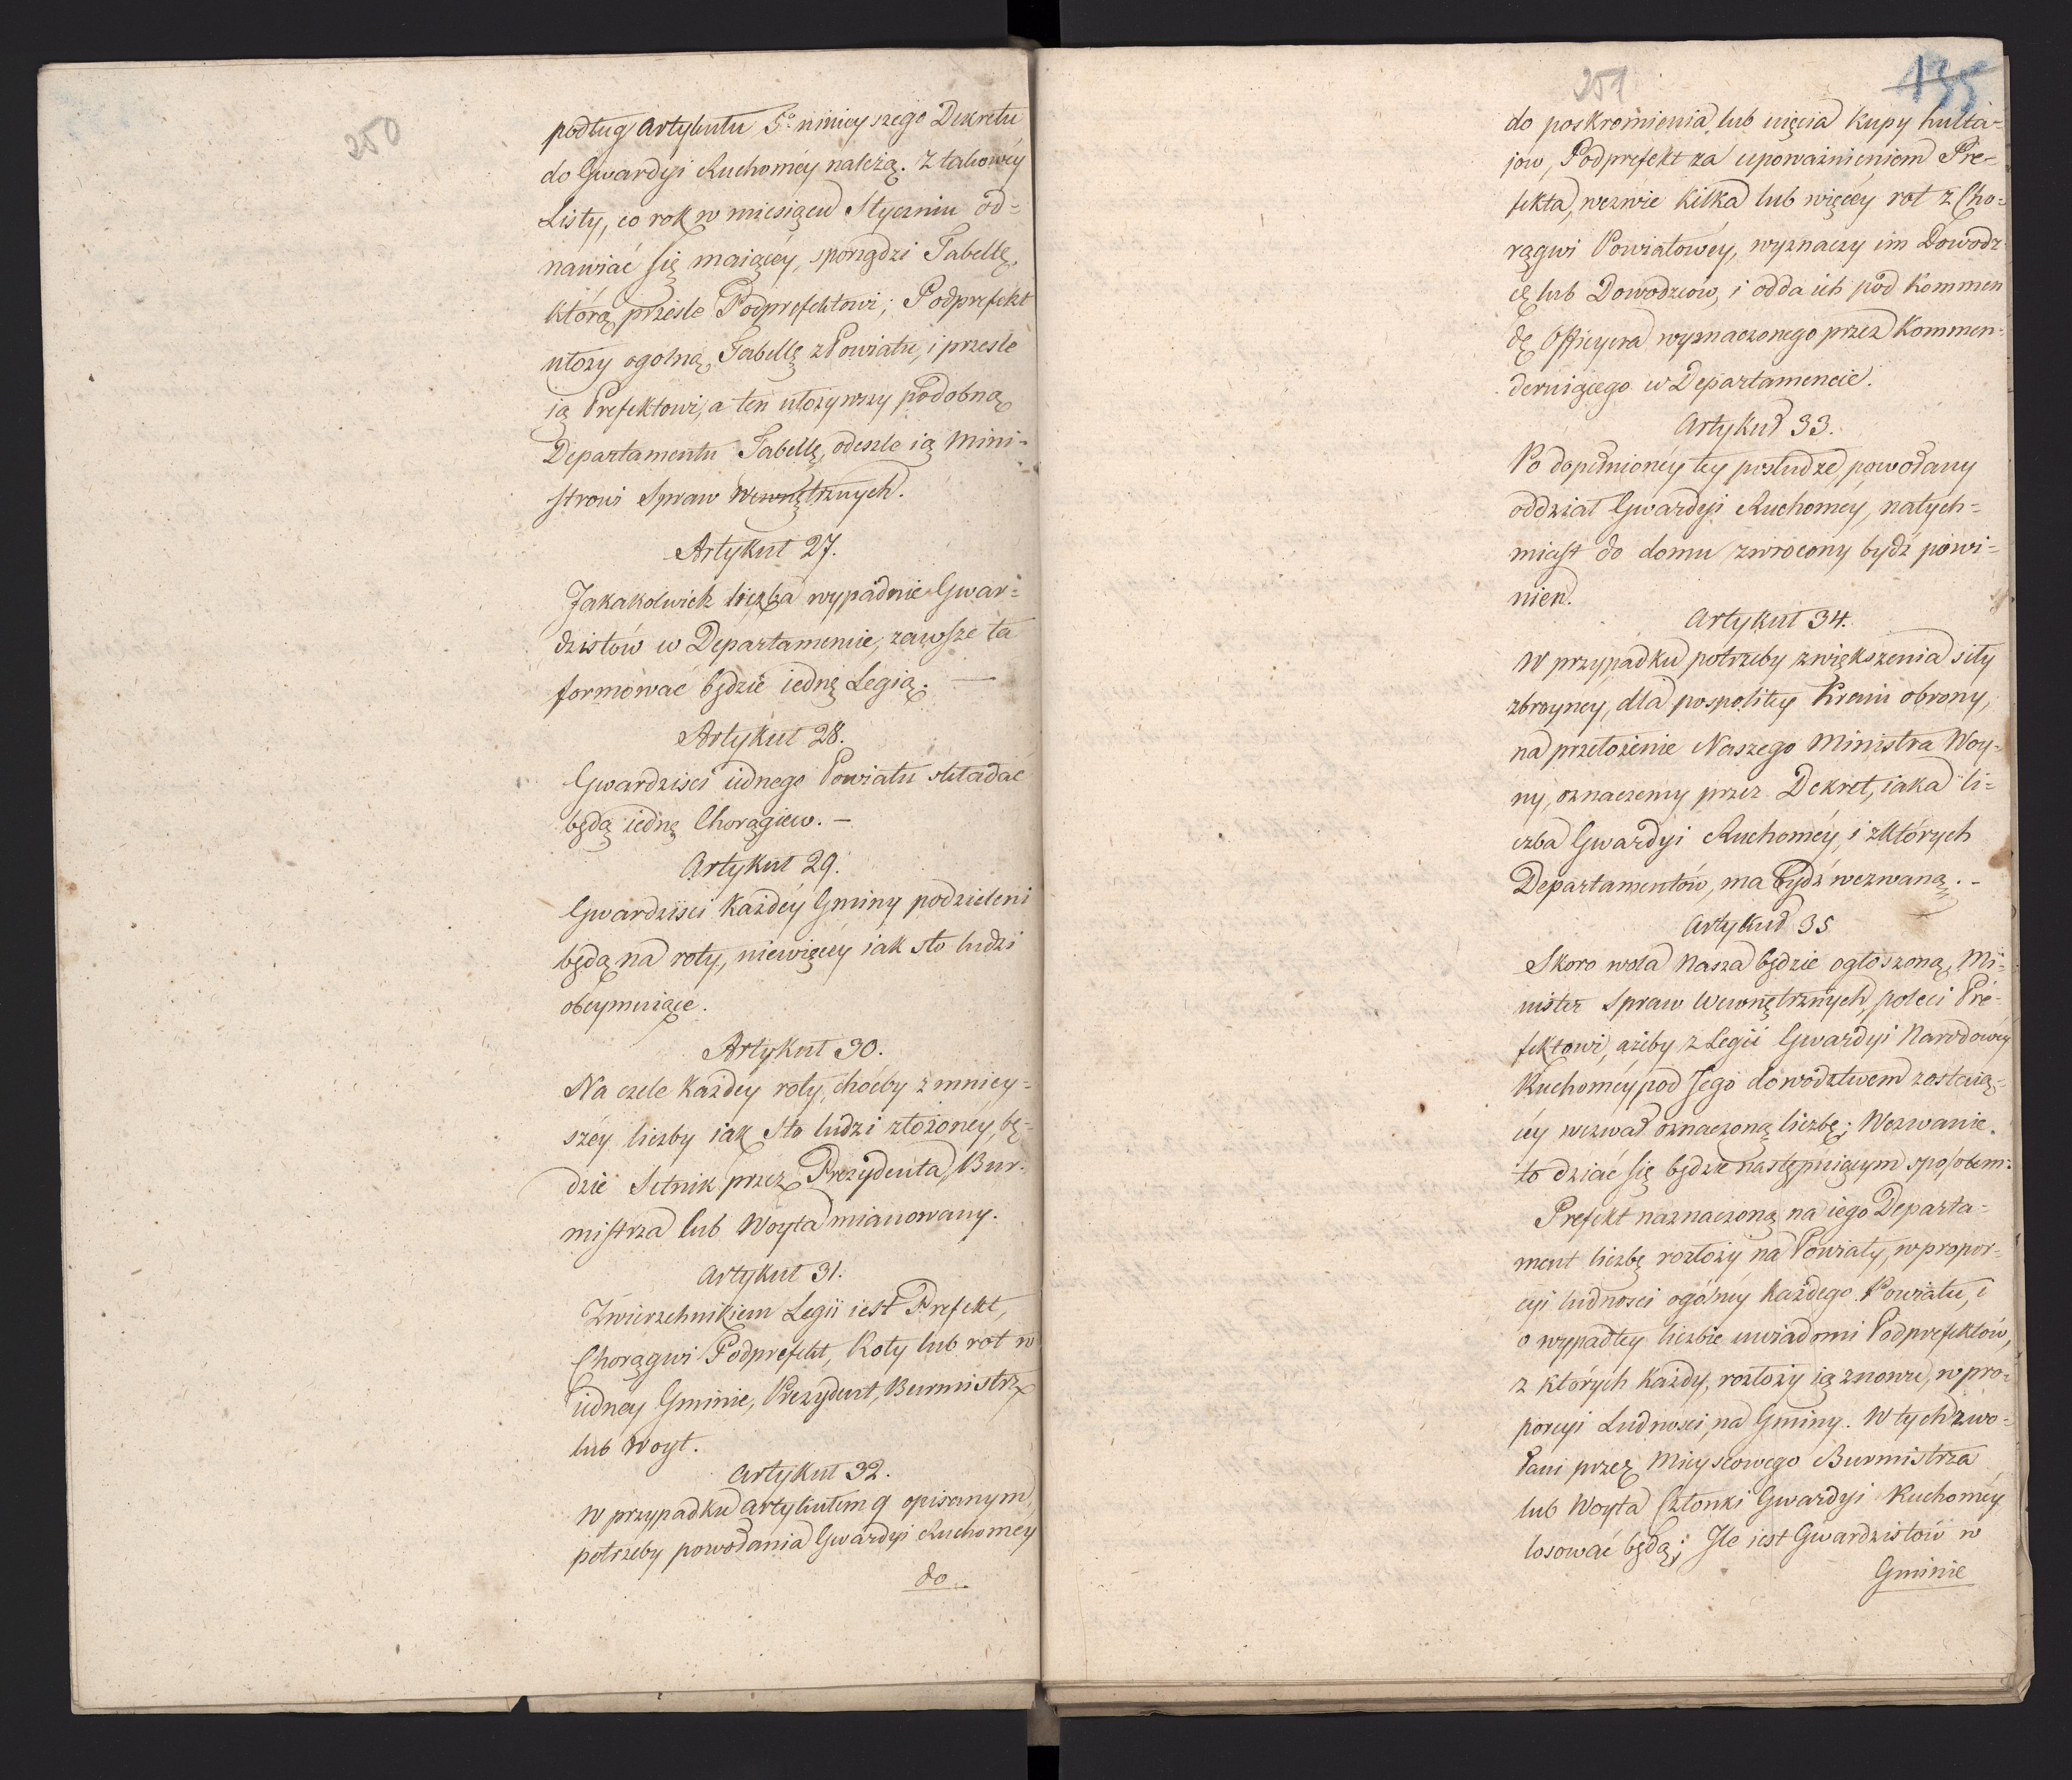 250
podług Artykułu 5º ninieyszego Dekretu
do Gwardyi Ruchoméy należą. Z takowéy
Listy, co rok w miesiącu Styczniu od=
nawiać się maiącéy, sporządzi Tabellę,
którą prześle Podprefektowi; Podprefekt
ułoży ogolną Tabellę z Powiatu, i prześle
ią Prefektowi, a ten ułożywszy podobną
Departamentu Tabellę, odeszle ią Mini=
strowi Spraw Wewnętrznych.
Artykuł 27.
Jakakolwiek liczba wypadnie Gwar=
dzistów w Departamencie, zawsze ta
formować będzie iednę Legią. —
Artykuł 28.
Gwardziści iednego Powiatu składać
będą iednę Chorągiew. —
Artykuł 29.
Gwardziści każdéy Gminy podzieleni
będą na roty, niewięcéy iak sto ludzi
obeymuiące.
Artykuł 30.
Na czele każdey roty, choćby z mniey=
széy liczby iak sto ludzi złożonéy, bę=
dzie Setnik przez Prezydenta, Bur=
mistrza lub Woyta mianowany.
Artykuł 31.
Zwierzchnikiem Legii iest Prefekt,
Chorągwi Podprefekt, Roty lub rot w
iedney Gminie, Prezydent, Burmistrz
lub Woyt.
Artykuł 32.
W przypadku Artykułem 9 opisanym,
potrzeby powołania Gwardyi Ruchoméy
do
251
135
do poskromienia lub uięcia kupy hulta=
jow, Podprefekt za upoważnieniem Pre=
fekta, wezwie kilka lub więcéy rot z Cho=
rągwi Powiatowéy, wyznaczy im Dowodz=
cę lub Dowodzców, i odda ich pod Kommen
dę Officyera wyznaczonego przez Kommen=
deruiącego w Departamencie.
Artykuł 33.
Po dopełnionéy tey posłudze, powołany
oddział Gwardyi Ruchoméy, natych=
miast do domu zwrócony bydź powi=
nien.
Artykuł 34.
W przypadku potrzeby zwiększenia siły
zbroyney, dla pospolitey Kraiu obrony,
na przełożenie Naszego Ministra Woy=
ny, oznaczemy przez Dekret, iaka li=
czba Gwardyi Ruchoméy, i z których
Departamentów, ma bydź wezwaną. -
Artykuł 35
Skoro wola Nasza będzie ogłoszoną, Mi=
nister Spraw Wewnętrznych, poleci Pre=
fektowi, ażeby z Legii Gwardyi Narodowéy
Ruchoméy pod Jego dowodztwem zostaią=
céy wezwał oznaczoną liczbę; Wezwanie
to dziać się będzie następuiącym sposobem:
Prefekt naznaczoną na iego Departa=
ment liczbę rozłoży na Powiaty, w propor=
cyi ludności ogólnéy każdego Powiatu, i
o wypadłey liczbie uwiadomi Podprefektów,
z których każdy, rozłoży ią znowu, w pro=
porcyi Ludności, na Gminy. W tych zwo=
łani przez Mieyscowego Burmistrza
lub Woyta Członki Gwardyi Ruchoméy
losować będą; Ile iest Gwardzistów w
Gminie